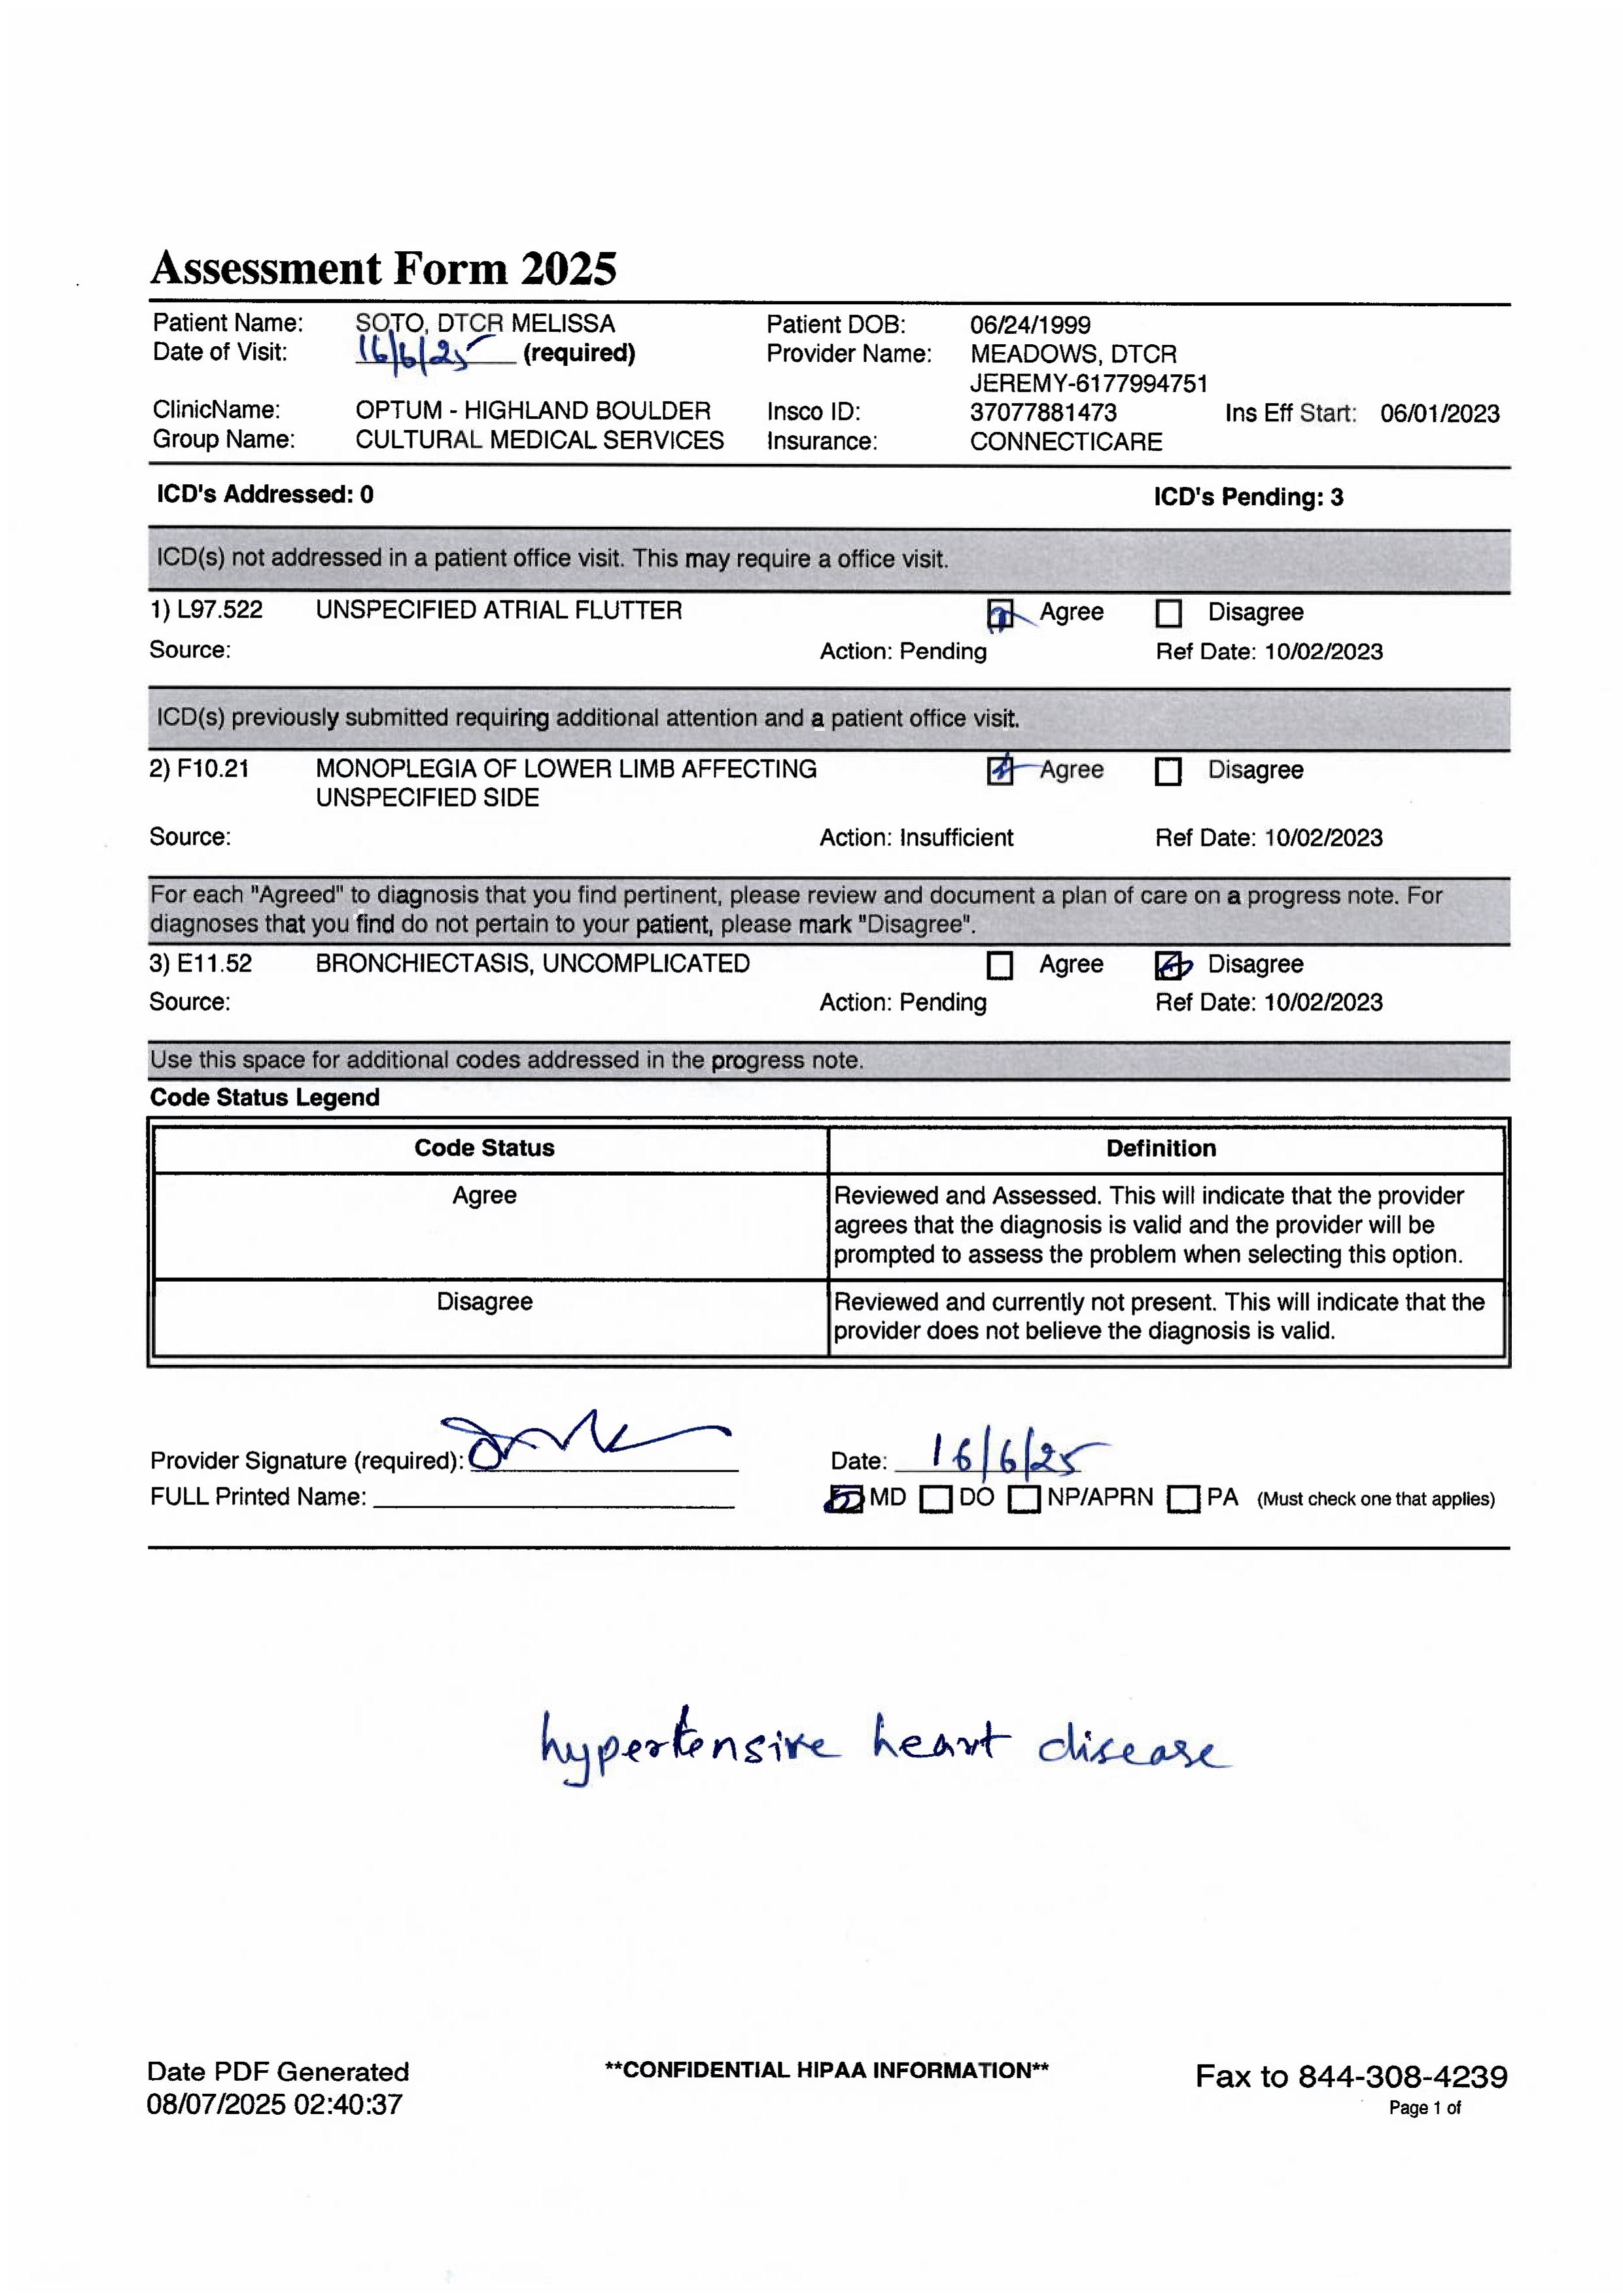 Assessment Form 2025
Patient Name: SOTO, DTCR MELISSA Patient DOB: 06/24/1999
Date of Visit: 16/6/25 (required) Provider Name: MEADOWS, DTCR
JEREMY-6177994751
ClinicName: OPTUM - HIGHLAND BOULDER Insco ID: 37077881473 Ins Eff Start: 06/01/2023
Group Name: CULTURAL MEDICAL SERVICES Insurance: CONNECTICARE
ICD's Addressed: 0 ICD's Pending: 3
ICD(s) not addressed in a patient office visit. This may require a office visit.
1) L97.522 UNSPECIFIED ATRIAL FLUTTER Agree Disagree
Source: Action: Pending Ref Date: 10/02/2023
ICD(s) previously submitted requiring additional attention and a patient office visit.
2) F10.21 MONOPLEGIA OF LOWER LIMB AFFECTING Agree Disagree
UNSPECIFIED SIDE
Source: Action: Insufficient Ref Date: 10/02/2023
For each "Agreed" to diagnosis that you find pertinent, please review and document a plan of care on a progress note. For
diagnoses that you find do not pertain to your patient, please mark "Disagree".
3) E11.52 BRONCHIECTASIS, UNCOMPLICATED Agree Disagree
Source: Action: Pending Ref Date: 10/02/2023
Use this space for additional codes addressed in the progress note.
Code Status Legend
Code Status Definition
Agree Reviewed and Assessed. This will indicate that the provider
agrees that the diagnosis is valid and the provider will be
prompted to assess the problem when selecting this option.
Disagree Reviewed and currently not present. This will indicate that the
provider does not believe the diagnosis is valid.
Provider Signature (required): Date: 16/6/25
FULL Printed Name: MD DO NP/APRN PA (Must check one that applies)
hypertensive heart disease
Date PDF Generated **CONFIDENTIAL HIPAA INFORMATION** Fax to 844-308-4239
08/07/2025 02:40:37 Page 1 of